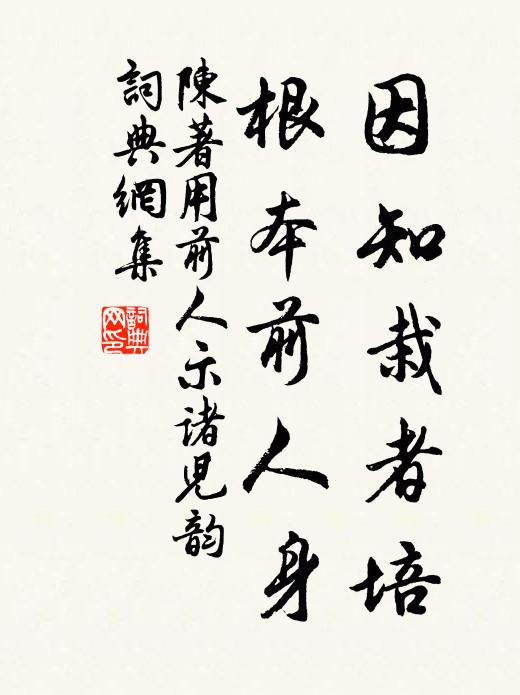 因知栽者培
根本前人身
陳著用前人示諸兒韵
詞典網集
詞典网印